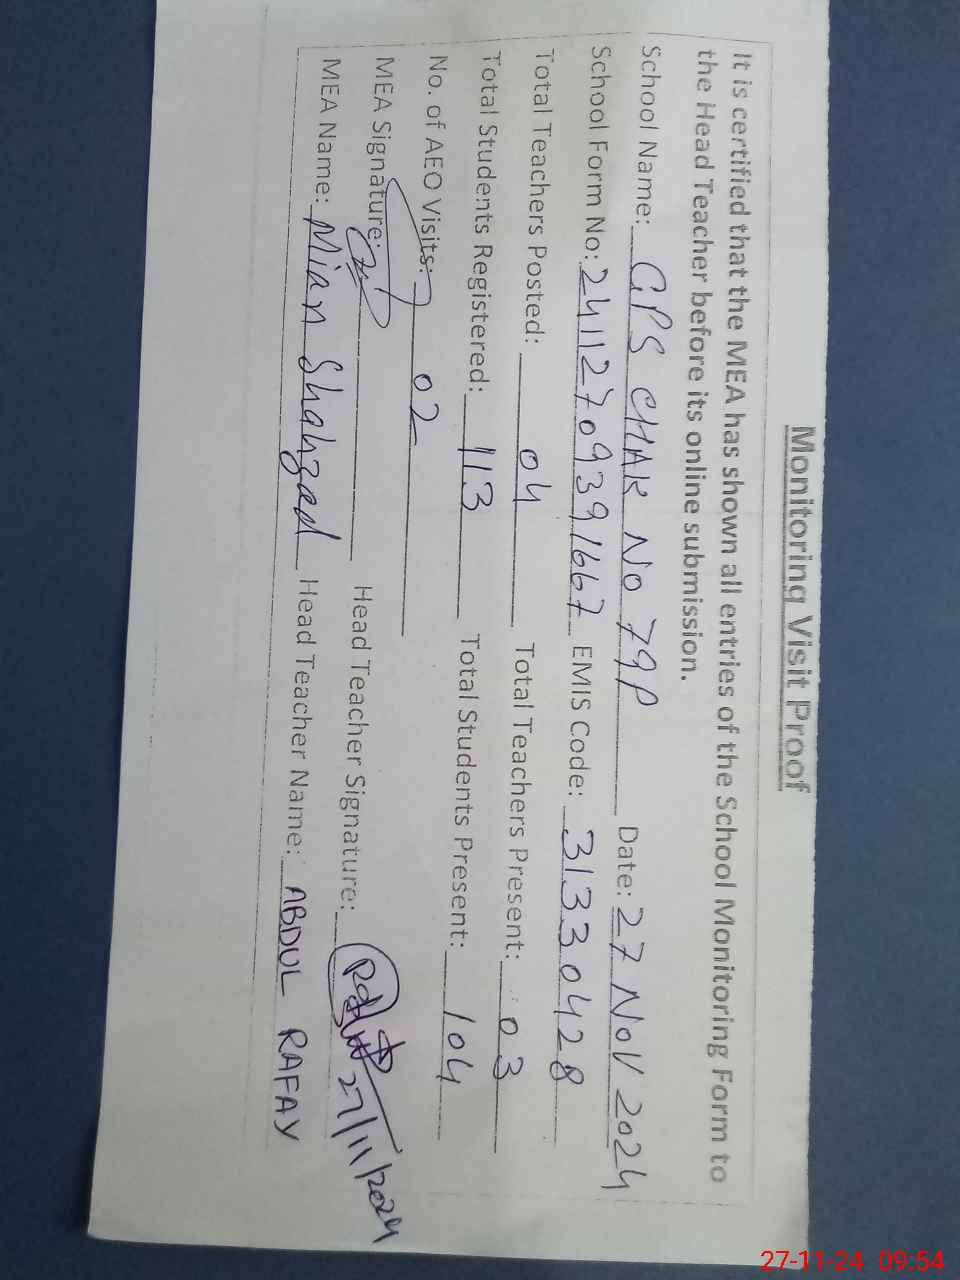 Monitoring Visit Proof
It is certified that the MEA has shown all entries of the School Monitoring Form to
the Head Teacher before its online submission.
School Name: GPS CHAK No 79P Date: 27 Nov 2024
School Form No: 24112709391667 EMIS Code: 31330428
Total Teachers Posted: 04 Total Teachers Present: 03
Total Students Registered: 113 Total Students Present: 104
No. of AEO Visits: 02
MEA Signature: Head Teacher Signature: 27/11/2024
MEA Name: Mian Shahzad Head Teacher Name: ABDUL RAFAY
27-11-24 09:54